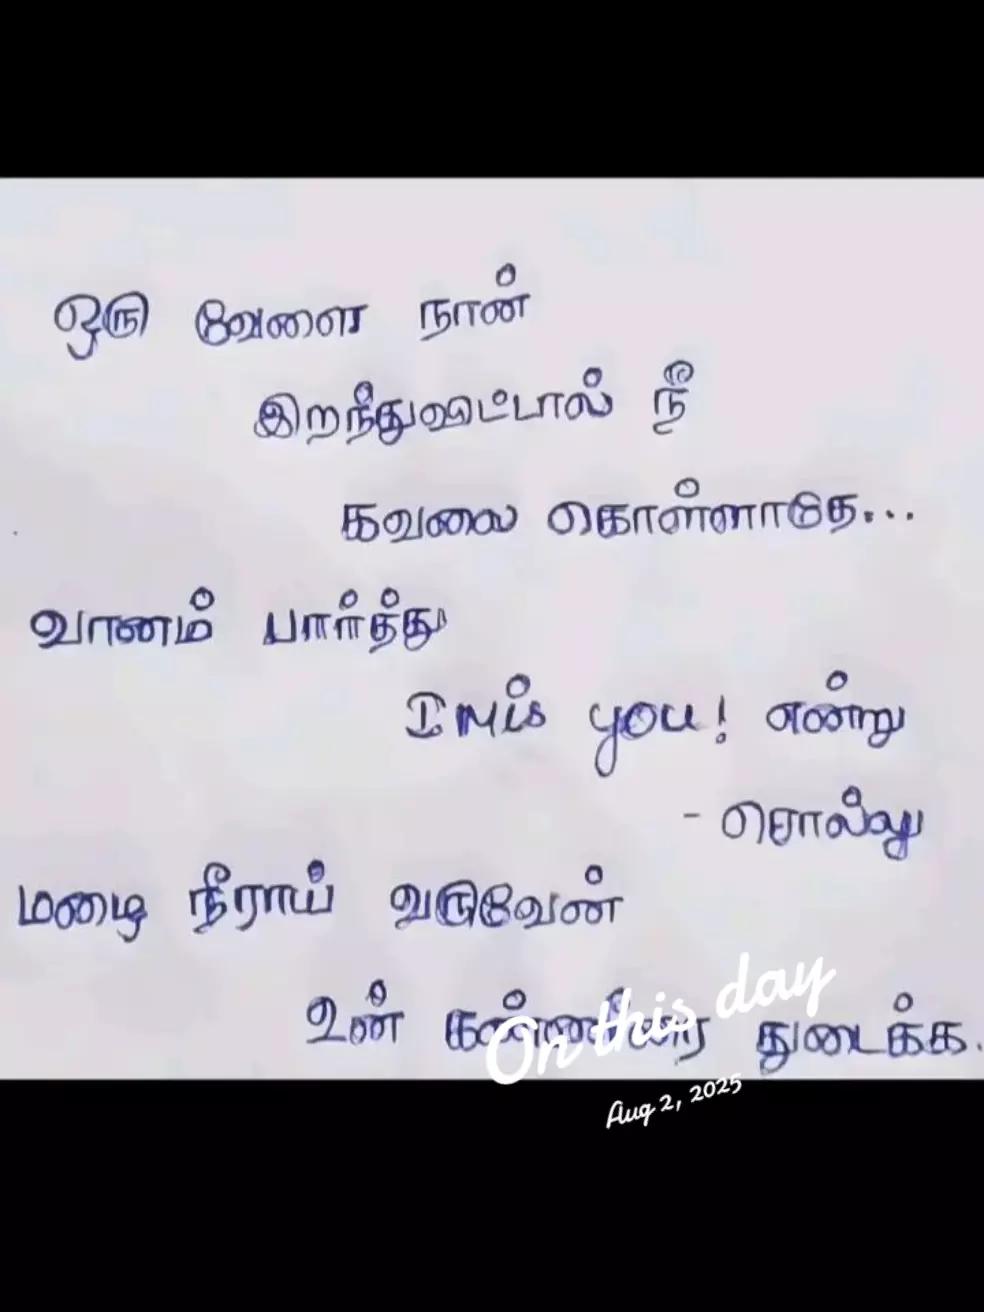 ஒரு வேளை நான்
இறந்துவிட்டால் நீ
கவலை கொள்ளாதே...
வானம் பார்த்து
I Mis you! என்று
- சொல்லு
மழை நீராய் வருவேன்
உன் கண்ணீரை துடைக்க.
On this day
Aug 2, 2025